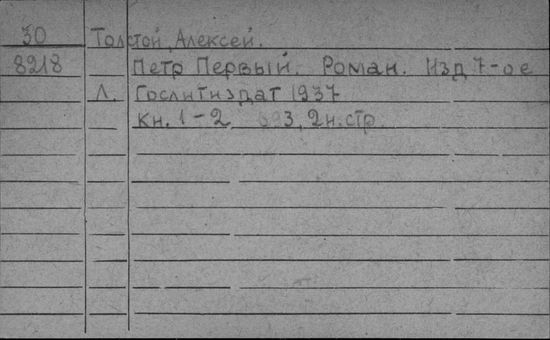 30 Толстой, Алексей.
8218 Петр Первый. Роман. Изд 7-ое
Л. Гослитиздат 1937
Кн. 1-2 693, 2н.стр.